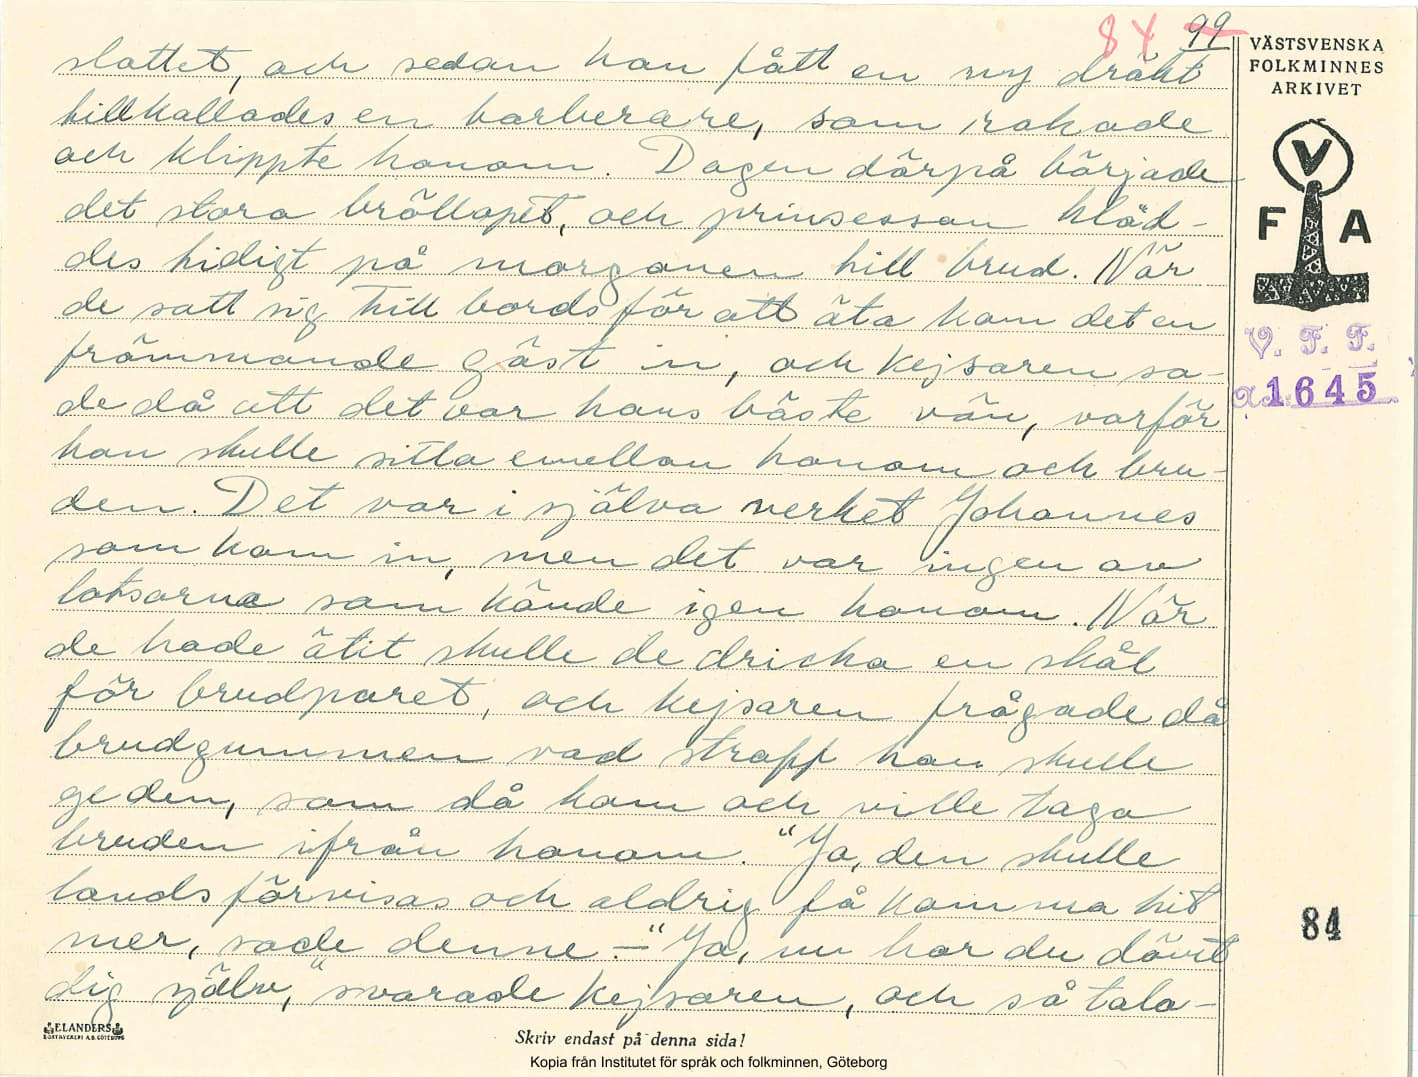 84 99
slottet, och sedan han fått en ny dräkt
tillkallades en barberare, som rakade
och klippte honom. Dagen därpå började
det stora bröllopet, och prinsessan kläd-
des tidigt på morgonen till brud. När
de satt sig till bords för att äta kom det en
främmande gäst in, och kejsaren sa-
de då att det var hans bäste vän, varför
han skulle sitta emellan honom och bru-
den. Det var i själva verket Johannes
som kom in, men det var ingen av
lotsarna som kände igen honom. När
de hade ätit skulle de dricka en skål
för brudparet, och kejsaren frågade då
brudgummen vad straff han skulle
ge den, som då kom och ville taga
bruden ifrån honom. "Ja, den skulle
landsförvisas och aldrig få komma hit
mer, sade denne. — "Ja, nu har du dömt
dig själv," svarade kejsaren, och så tala-
VÄSTSVENSKA
FOLKMINNES
ARKIVET
V
F A
V. F. F.
1645
84
ELANDERS
BOKTRYCKERI A.B. GÖTEBORG
Skriv endast på denna sida!
Kopia från Institutet för språk och folkminnen, Göteborg